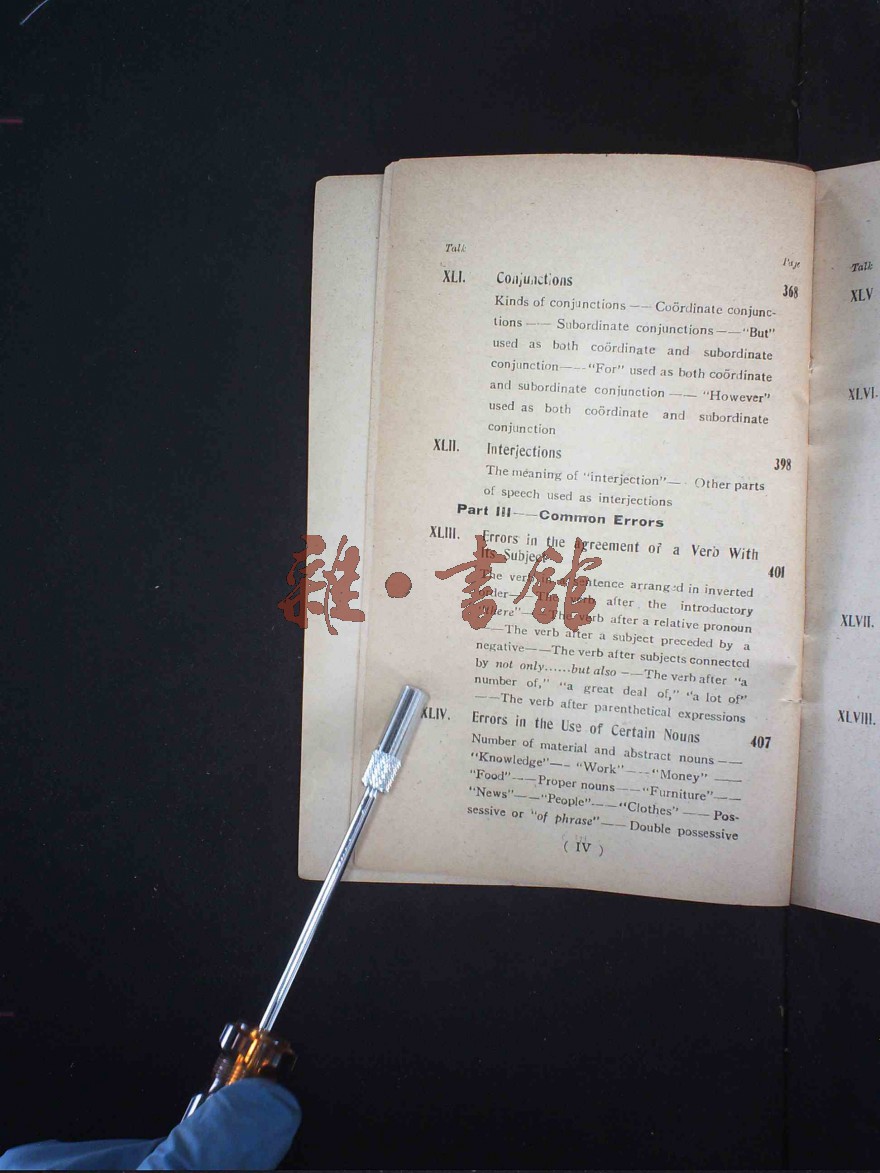 Talk
Page
XLI. Conjunctions 368
Kinds of conjunctions —— Coördinate conjunc-
tions —— Subordinate conjunctions —— "But"
used as both coördinate and subordinate
conjunction —— "For" used as both coördinate
and subordinate conjunction —— "However"
used as both coördinate and subordinate
conjunction
XLII. Interjections 398
The meaning of "interjection"—— Other parts
of speech used as interjections
Part III——Common Errors
XLIII. Errors in the agreement of a Verb With
Its Subject 401
The verb in a sentence arranged in inverted
order——The verb after the introductory
"there"——The verb after a relative pronoun
——The verb after a subject preceded by a
negative——The verb after subjects connected
by not only......but also ——The verb after "a
number of," "a great deal of," "a lot of"
——The verb after parenthetical expressions
XLIV. Errors in the Use of Certain Nouns 407
Number of material and abstract nouns ——
"Knowledge"—— "Work"——"Money" ——
"Food"——Proper nouns——"Furniture"——
"News"——"People"——"Clothes"—— Pos-
sessive or "of phrase"—— Double possessive
( IV )
Talk
XLV
XLVI.
XLVII.
XLVIII.
雜·書館